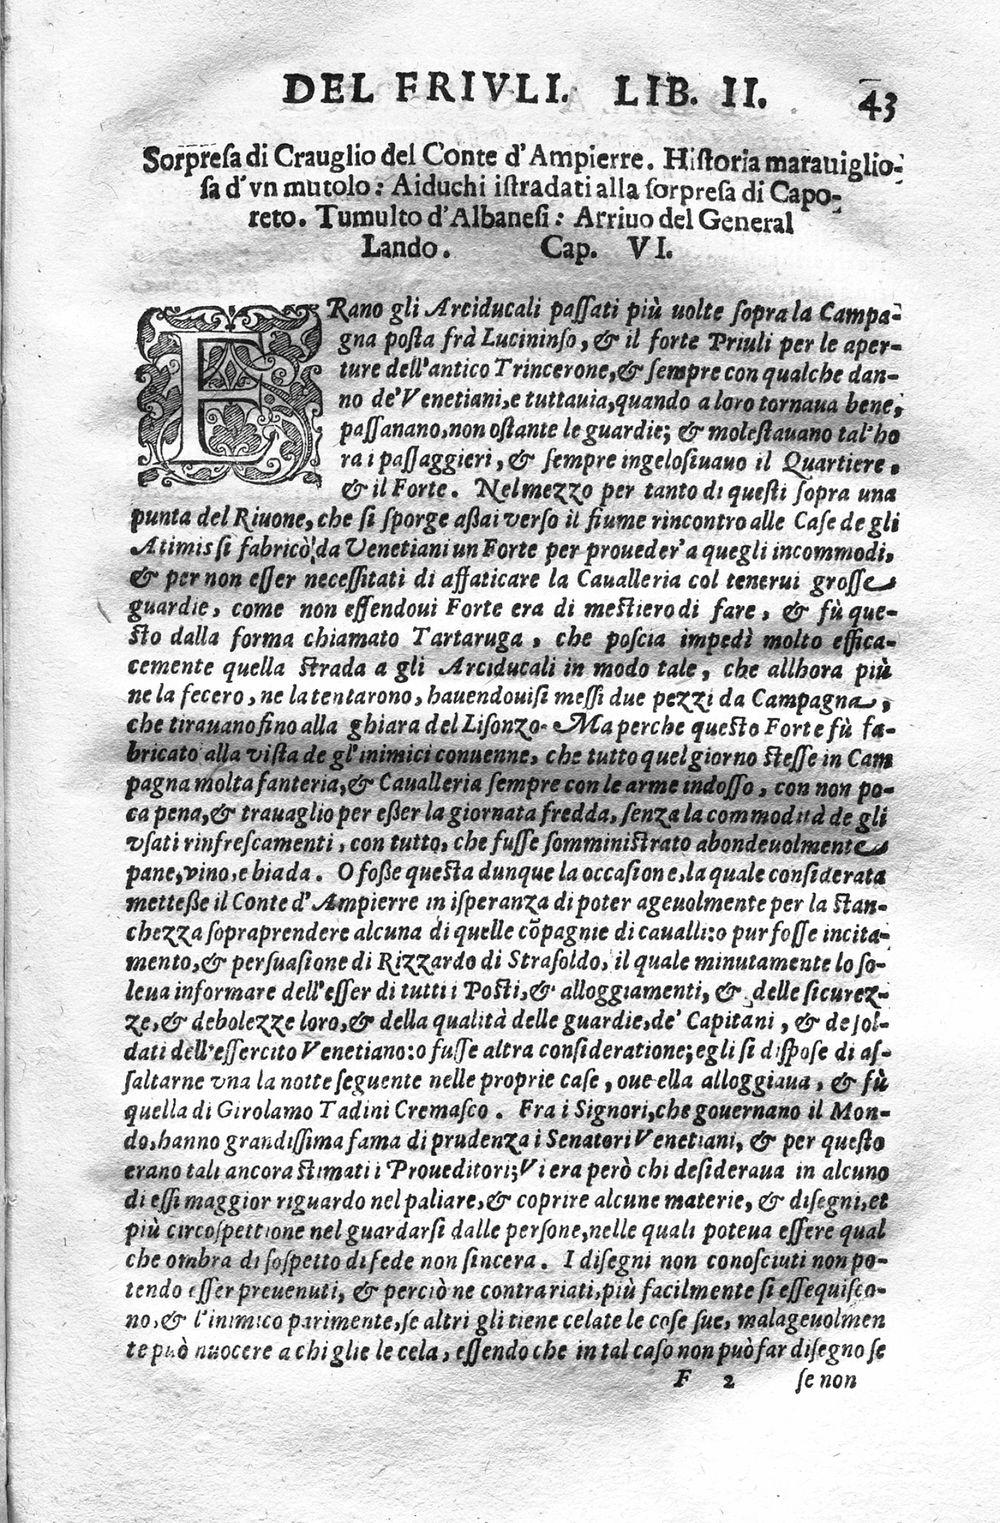 DEL FRIVLI. LIB. II. 43
Sorpreſa di Crauglio del Conte d'Ampierre. Hiſtoria marauiglio-
ſa d'vn mutolo: Aiduchi iſtradati alla ſorpreſa di Capo-
reto. Tumulto d'Albaneſi: Arriuo del General
Lando. Cap. VI.
ERano gli Arciducali paſſati più uolte ſopra la Campa-
gna poſta frà Lucininſo, & il forte Priuli per le aper-
ture dell'antico Trincerone, & ſempre con qualche dan-
no de' Venetiani, e tuttauia, quando a loro tornaua bene,
paſſanano, non oſtante le guardie; & moleſtauano tal'ho
ra i paſſaggieri, & ſempre ingeloſiuano il Quartiere,
& il Forte. Nel mezzo per tanto di queſti ſopra una
punta del Riuone, che ſi ſporge aßai verſo il fiume rincontro alle Caſe de gli
Atimis ſi fabricò da Venetiani un Forte per proueder'a quegli incommodi,
& per non eſſer neceſſitati di affaticare la Caualleria col tenerui groſſe
guardie, come non eſſendoui Forte era di meſtiero di fare, & fù que-
ſto dalla forma chiamato Tartaruga, che poſcia impedì molto effica-
cemente quella ſtrada a gli Arciducali in modo tale, che allhora più
ne la fecero, ne la tentarono, hauendouiſi meſſi due pezzi da Campagna,
che tirauano fino alla ghiara del Liſonzo. Ma perche queſto Forte fù fa-
bricato alla viſta de gl'inimici conuenne, che tutto quel giorno ſteſſe in Cam
pagna molta fanteria, & Caualleria ſempre con le arme indoſſo, con non po-
ca pena, & trauaglio per eßer la giornata fredda, ſenza la commodità de gli
vſati rinfreſcamenti, con tutto, che fuſſe ſomminiſtrato abondeuolmente
pane, vino, e biada. O foße queſta dunque la occaſione, la quale conſiderata
metteße il Conte d'Ampierre in iſperanza di poter ageuolmente per la ſtan-
chezza ſopraprendere alcuna di quelle cõpagnie di caualli: o pur foſſe incita-
mento, & perſuaſione di Rizzardo di Straſoldo, il quale minutamente lo ſo-
leua informare dell'eſſer di tutti i Poſti, & alloggiamenti, & delle ſicurez-
ze, & debolezze loro, & della qualità delle guardie, de' Capitani, & de ſol-
dati dell'eſſercito Venetiano: o fuſſe altra conſideratione; egli ſi diſpoſe di aſ-
ſaltarne vna la notte ſeguente nelle proprie caſe, oue ella alloggiaua, & fù
quella di Girolamo Tadini Cremaſco. Fra i Signori, che gouernano il Mon-
do, hanno grandiſſima fama di prudenza i Senatori Venetiani, & per queſto
erano tali ancora ſtimati i Proueditori; Vi era però chi deſideraua in alcuno
di eſſi maggior riguardo nel paliare, & coprire alcune materie, & diſegni, et
più circoſpettione nel guardarſi dalle perſone, nelle quali poteua eſſere qual
che ombra di ſoſpetto di fede non ſincera. I diſegni non conoſciuti non po-
tendo eſſer preuenuti, & perciò ne contrariati, più facilmente ſi eſſequiſco-
no, & l'inimico parimente, ſe altri gli tiene celate le coſe ſue, malageuolmen
te può nuocere a chi glie le cela, eſſendo che in tal caſo non può far diſegno ſe
F 2 ſe non